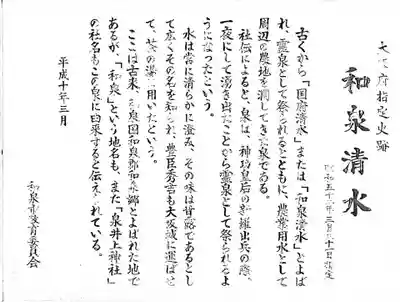 大阪府指定史跡
和泉清水
昭和五十三年三月三十一日指定
古くから「国府清水」または「和泉清水」とよば
れ、霊泉として祭られるとともに、農業用水として
周辺の農地を潤してきた泉である。
社伝によると、泉は、神功皇后の新羅出兵の際、
一夜にして湧き出たことから霊泉として祭られるよ
うになったという。
水は常に清らかに澄み、その味は甘露であるとし
て広くその名を知られ、豊臣秀吉も大坂城に運ばせ
て、茶の湯に用いたという。
ここは古来、和泉国和泉郡和泉郷とよばれた地で
あるが、「和泉」という地名も、また「泉井上神社」
の社名もこの泉に由来すると伝えられている。
平成十年三月
和泉市教育委員会